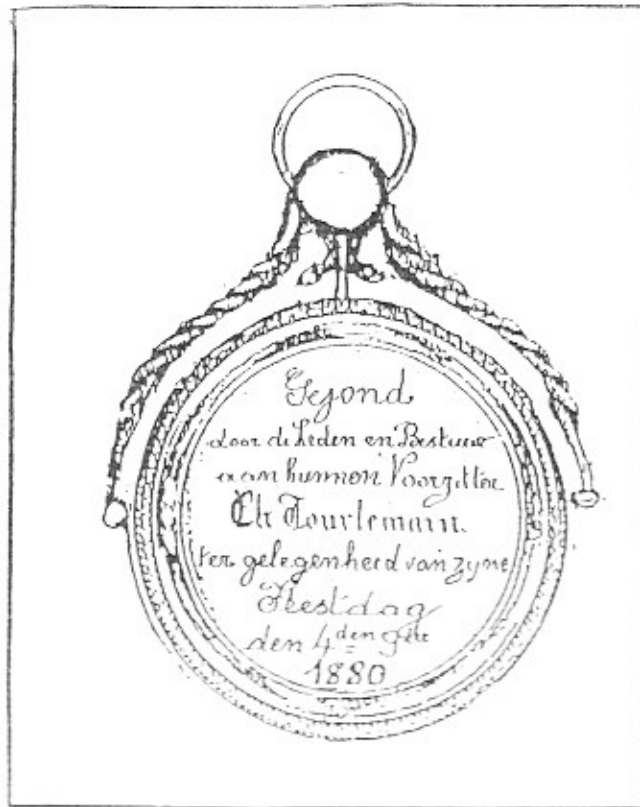 Gejond
door de Leden en Bestuur
aan hunnen Voorzitter
Ch Tourlemain.
ter gelegenheid van zyne
Feestdag
den 4den 9bre
1880